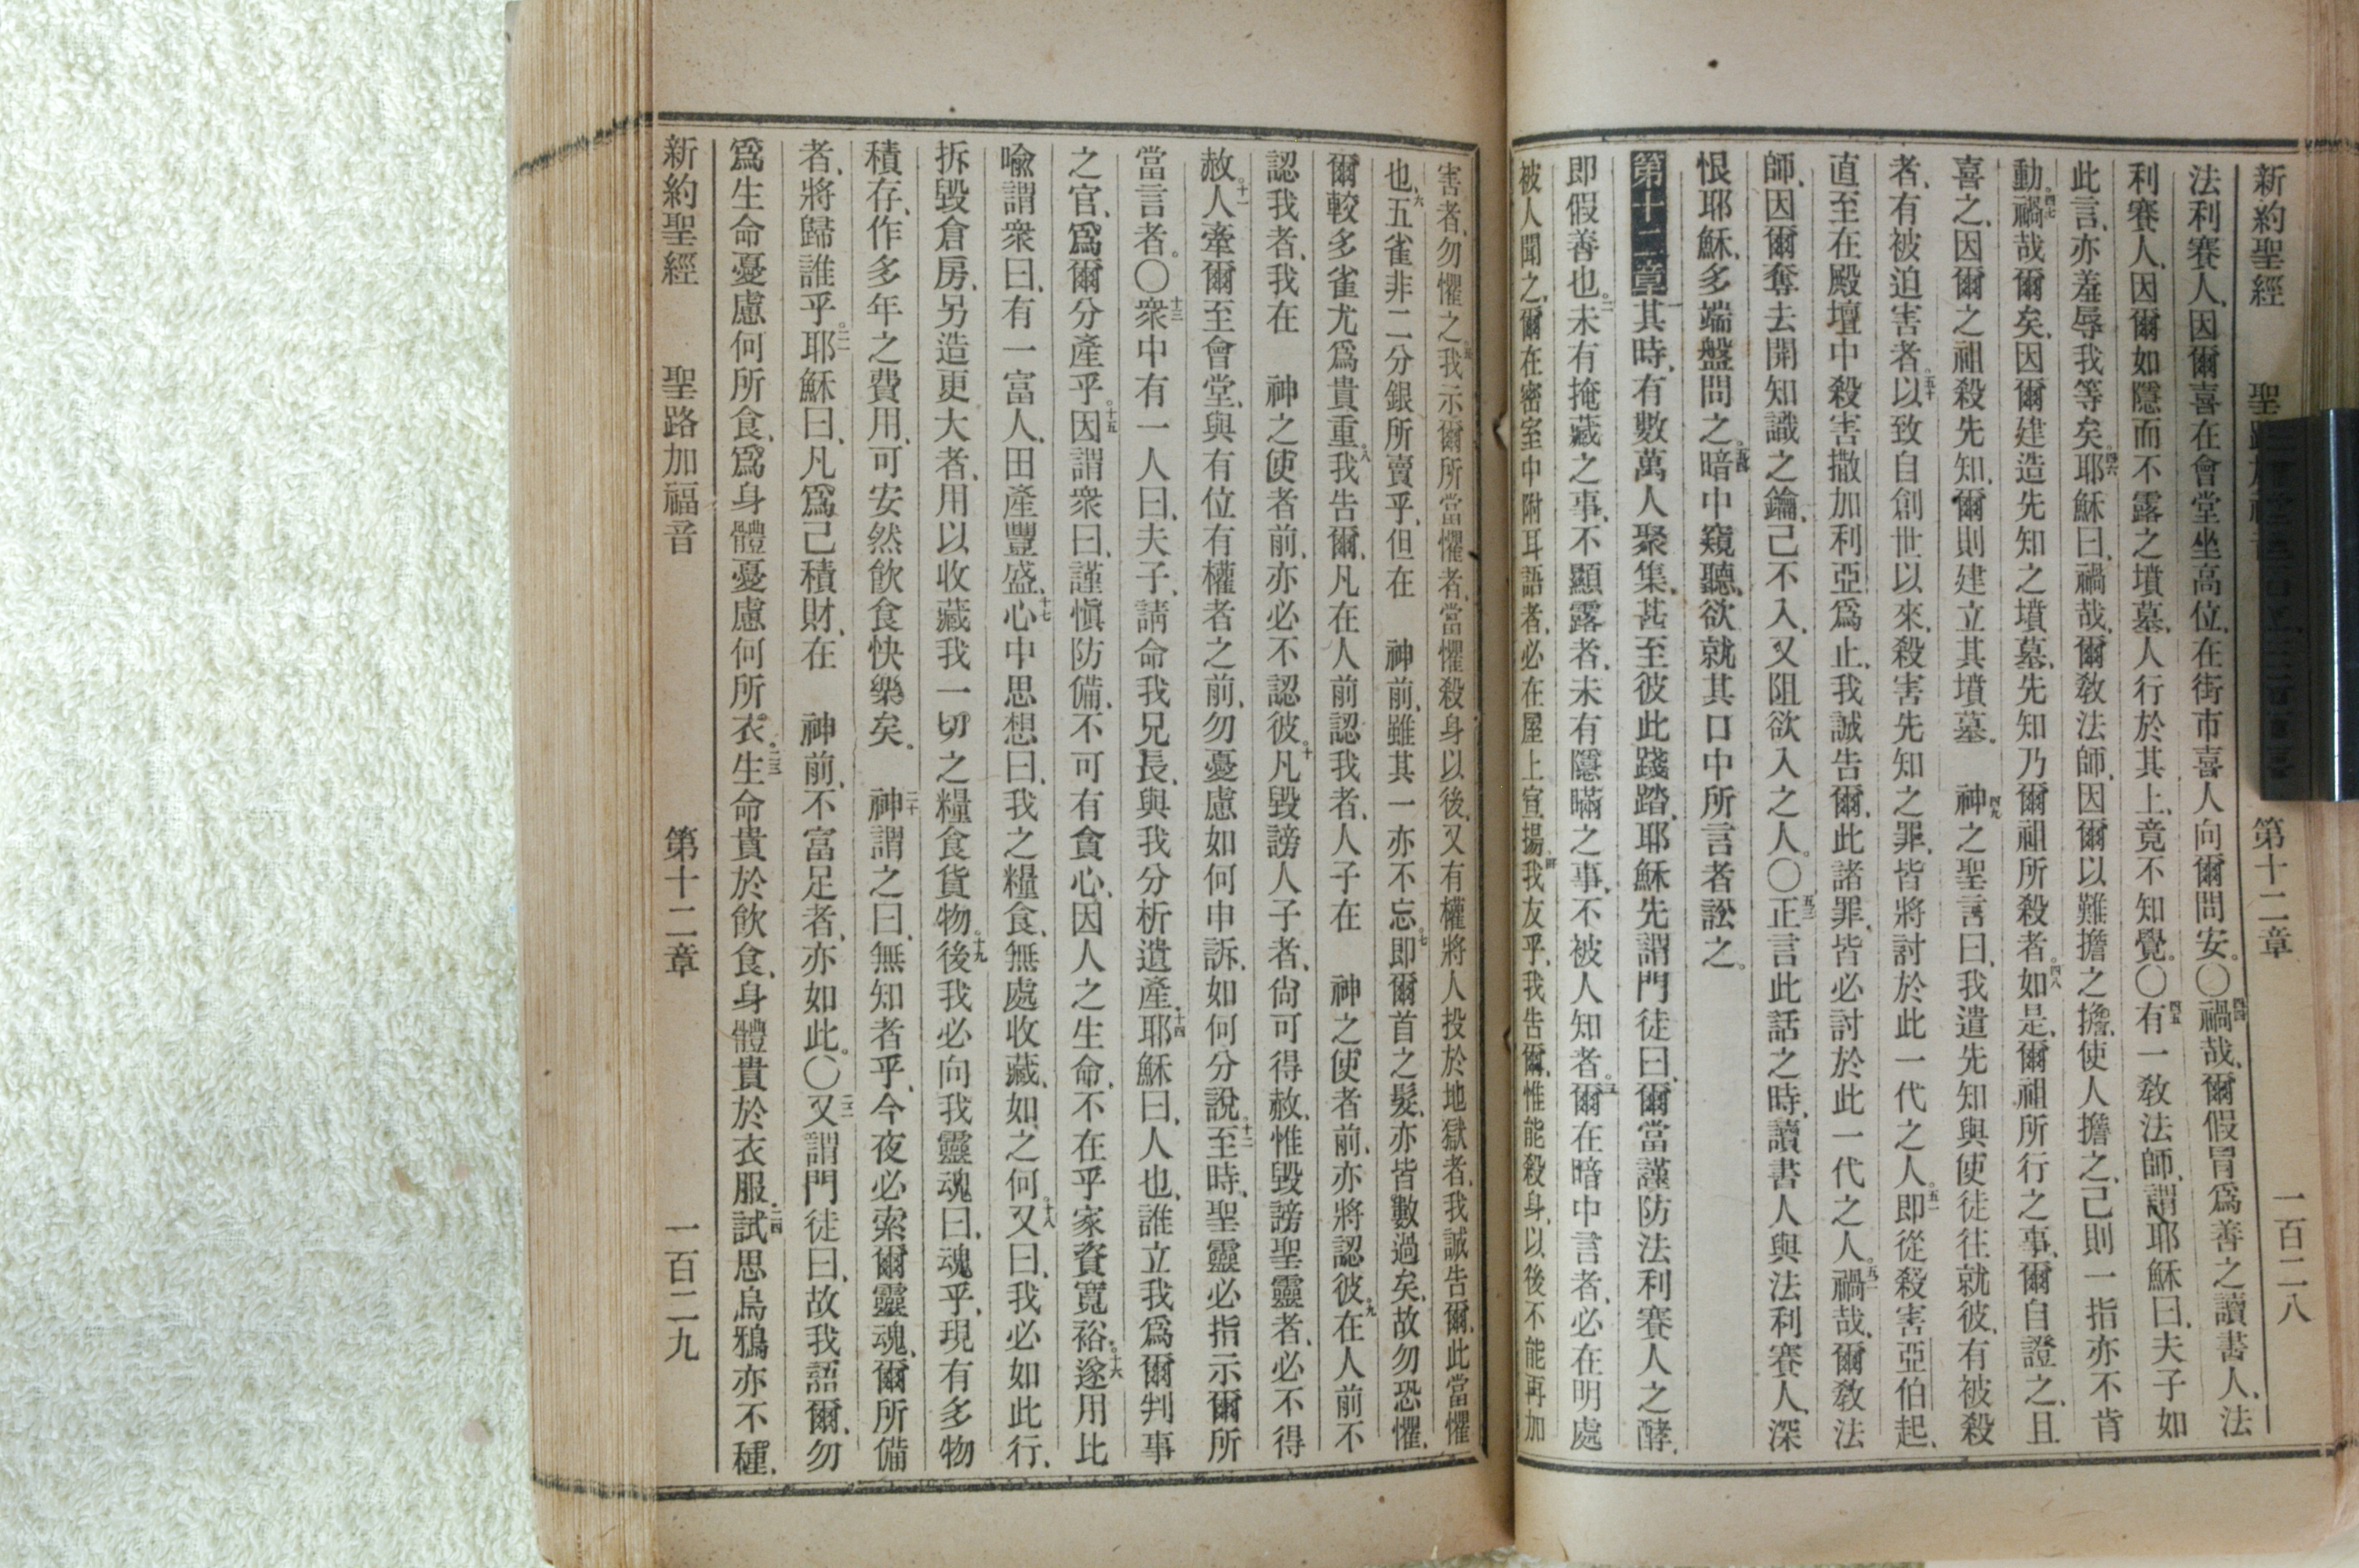 新約聖經 聖路 第十二章 一百二八
法利賽人、因爾喜在會堂坐高位、在街市喜人向爾問安。〇四四禍哉、爾假冒爲善之讀書人、法
利賽人、因爾如隱而不露之墳墓、人行於其上、竟不知覺。〇四五有一教法師、謂耶穌曰、夫子如
此言、亦羞辱我等矣。四六耶穌曰、禍哉、爾教法師、因爾以難擔之擔、使人擔之、己則一指亦不肯
動。四七禍哉爾矣、因爾建造先知之墳墓、先知乃爾祖所殺者。四八如是、爾祖所行之事、爾自證之、且
喜之、因爾之祖殺先知、爾則建立其墳墓。四九神之聖言曰、我遣先知與使徒往就彼、有被殺
者、有被迫害者。五十以致自創世以來、殺害先知之罪、皆將討於此一代之人。五一即從殺害亞伯起、
直至在殿壇中殺害撒加利亞爲止、我誠告爾、此諸罪、皆必討於此一代之人。五二禍哉、爾教法
師、因爾奪去開知識之鑰、己不入、又阻欲入之人。〇五三正言此話之時、讀書人與法利賽人、深
恨耶穌、多端盤問之。五四暗中窺聽、欲就其口中所言者訟之。
第十二章一其時、有數萬人聚集、甚至彼此踐踏、耶穌先謂門徒曰、爾當謹防法利賽人之酵、
即假善也。二未有掩藏之事、不顯露者、未有隱瞞之事、不被人知者。三爾在暗中言者、必在明處
被人聞之、爾在密室中附耳語者、必在屋上宣揚。四我友乎、我告爾、惟能殺身、以後不能再加
害者、勿懼之。五我示爾所當懼者、當懼殺身以後、又有權將人投於地獄者、我誠告爾、此當懼
也。六五雀非二分銀所賣乎、但在 神前、雖其一亦不忘。七即爾首之髮、亦皆數過矣、故勿恐懼、
爾較多雀尤爲貴重。八我告爾、凡在人前認我者、人子在 神之使者前、亦將認彼。九在人前不
認我者、我在 神之使者前、亦必不認彼。十凡毀謗人子者、尚可得赦、惟毀謗聖靈者、必不得
赦。十一人牽爾至會堂、與有位有權者之前、勿憂慮如何申訴、如何分說。十二至時、聖靈必指示爾所
當言者。〇十三衆中有一人曰、夫子、請命我兄長、與我分析遺產。十四耶穌曰、人也、誰立我爲爾判事
之官、爲爾分產乎。十五因謂衆曰、謹愼防備、不可有貪心、因人之生命、不在乎家資寬裕。十六遂用比
喩謂衆曰、有一富人、田產豐盛。十七心中思想曰、我之糧食、無處收藏、如之何。十八又曰、我必如此行、
拆毀倉房、另造更大者、用以收藏我一切之糧食貨物。十九後我必向我靈魂曰、魂乎、現有多物
積存、作多年之費用、可安然飲食快樂矣。二十神謂之曰、無知者乎、今夜必索爾靈魂、爾所備
者、將歸誰乎。二一耶穌曰、凡爲己積財、在 神前、不富足者、亦如此。〇二二又謂門徒曰、故我語爾、勿
爲生命憂慮何所食、爲身體憂慮何所衣。二三生命貴於飲食、身體貴於衣服。二四試思烏鴉亦不種、
新約聖經 聖路加福音 第十二章 一百二九